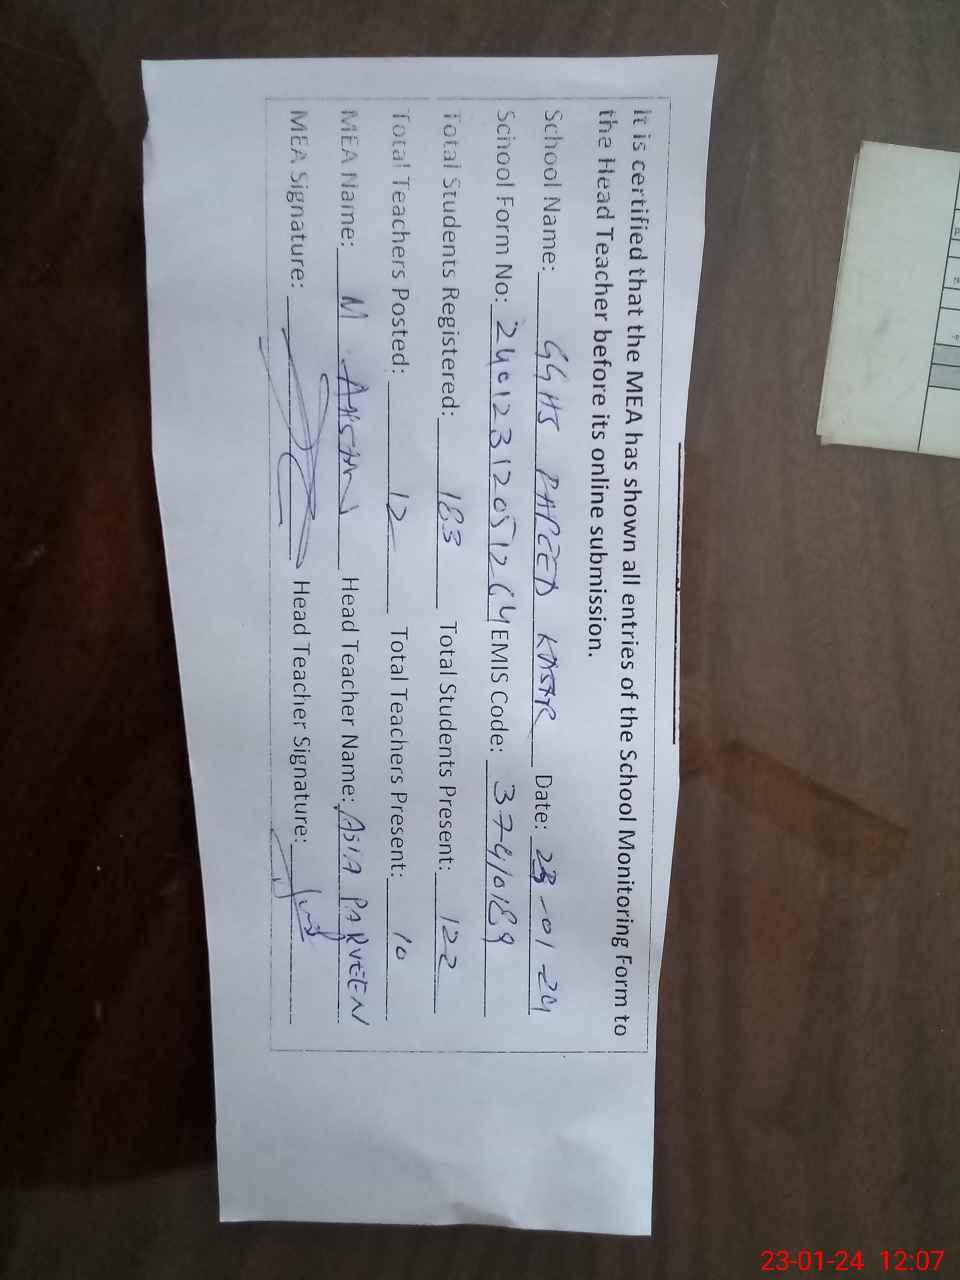 It is certified that the MEA has shown all entries of the School Monitoring Form to
the Head Teacher before its online submission.
School Name: GGHS Date: 23-01-24
School Form No: EMIS Code: 37410189
Total Students Registered: 183 Total Students Present: 122
Total Teachers Posted: 12 Total Teachers Present: 10
MEA Name: M Head Teacher Name: ASIA PARVEEN
MEA Signature: Head Teacher Signature:
23-01-24 12:07